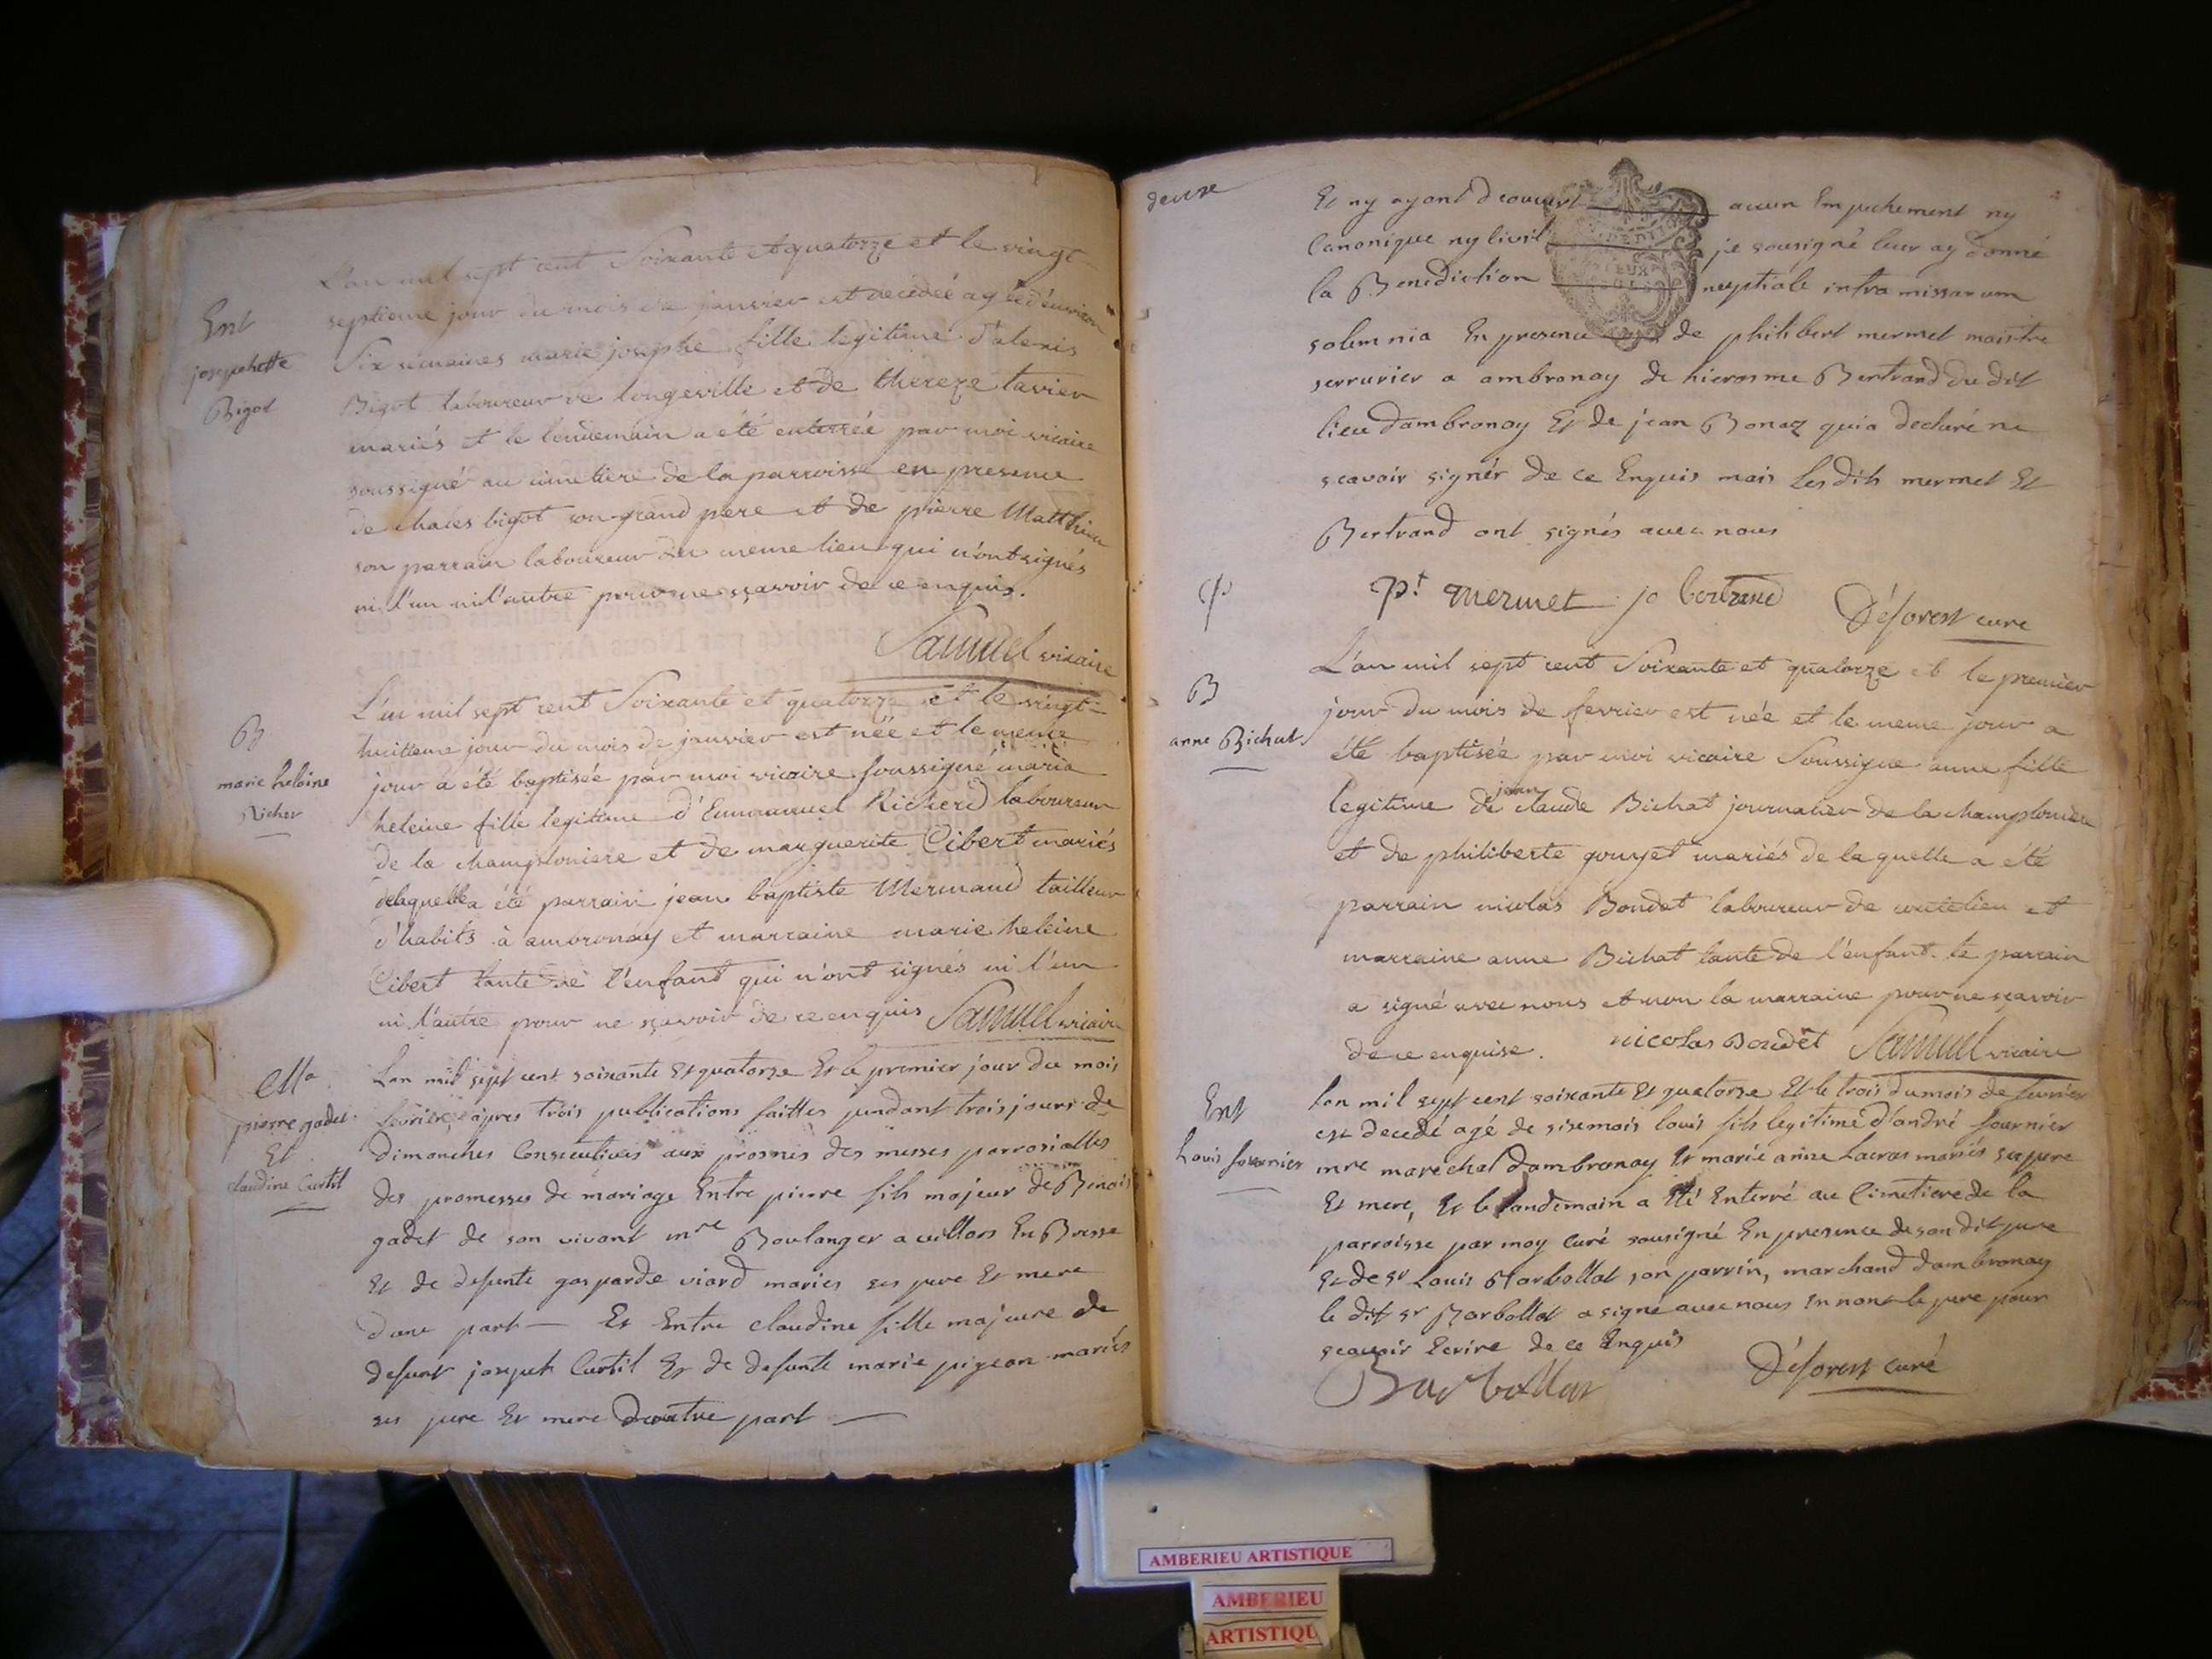 Ent
josephette
Bigot
L'an mil sept cent Soixante et quatorze et le vingt
septieme jour du mois de janvier est décédée agée d'environ
Six semaines marie josephe fille legitime d'alexis
Bigot laboureur de longeville et de thereze tavier
mariés et le lendemain a été enterrée par moi vicaire
soussigné au cimetiere de la parroisse en presence
de chales bigot son grand pere et de pierre Matthieu
son parrain laboureur du meme lieu qui n'ont signés
ni l'un ni l'autre pour ne sçavoir de ce enquis.
Samuel vicaire
B
marie heleine
Richer
L'an mil sept cent Soixante et quatorze et le vingt-
huitieme jour du mois de janvier est née et le meme
jour a été baptisée par moi vicaire soussigné maria
heleine fille legitime d'Emmanuel Richerd laboureur
de la champloniere et de marguerite Cibert mariés
de laquelle a été parrain jean baptiste Mermand tailleur
d'habits à ambronay et marraine marie heleine
Cibert tante de l'enfant qui n'ont signés ni l'un
ni l'autre pour ne sçavoir de ce enquis Samuel vicaire
Ma
pierre gadet
Et
claudine Curtil
Lan mil sept cent soixante Et quatorze Et le premier jour du mois
fevrier apres trois publications faittes pendant trois jours de
dimanches Consecutives aux prosnes des messes parrosialles
des promesses de mariage Entre pierre fils majeur de Benois
gadet de son vivant mre Boulanger a villars En Bresse
Et de defunte gasparde viard mariés ses pere Et mere
dune part — Et Entre claudine fille majeure de
defunt joseph Curtil Et de defunte marie pigeon mariés
ses pere Et mere dautre part —
deuxe
Et ny ayant decouvert aucun Empechement ny
Canonique ny Civil je sousigné leur ay donné
la Benediction nuptiale intra missarum
solemnia En presence de philibert mermet maistre
serrurier a ambronay de hierosme Bertrand du dit
lieu dambronay Et de jean Bonaz qui a declaré ne
scavoir signér de ce Enquis mais Les dits mermet Et
Bertrand ont signés avec nous
pt mermet jo bertrand Déforest curé
B
anne Bichat
L'an mil sept cent Soixante et quatorze et le premier
jour du mois de fevrier est née et le meme jour a
été baptisée par moi vicaire Soussigné anne fille
legitime de jean claude Bichat journalier de la champloniere
et de philiberte gouyet mariés de laquelle a été
parrain nicolas Boudet laboureur de coutelieu et
marraine anne Bichat tante de l'enfant. le parrain
a signé avec nous et non la marraine pour ne sçavoir
de ce enquise. nicolas Boudet Samuel vicaire
Ent
Louis fournier
Lan mil sept cent soixante Et quatorze Et le trois du mois de fevrier
est decedé agé de sixe mois louis fils legitime d'andré fournier
mre marechal dambronay Et marie anne Lacras mariés ses pere
Et mere, Et le landemain a Eté Enterré au Cimetiere de la
parroisse par moy Curé sousigné En presence de son dit pere
Et de sr Louis Barbollat son parrin, marchand dambronay
le dit sr Barbollat a signé avec nous Et non le pere pour
scavoir Ecrire de ce Enquis
Barbollat Déforest curé
AMBERIEU ARTISTIQUE
AMBERIEU
ARTISTIQU